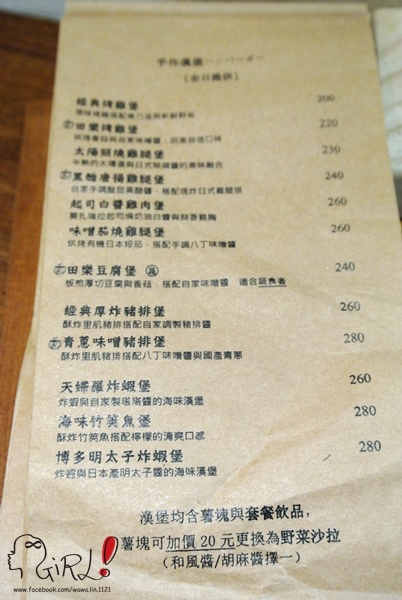 手作漢堡ハンバーガー
(全日提供)
經典烤雞堡 200
田樂烤雞堡 220
烘烤香菇與自家味噌醬,
太陽照燒雞腿堡 230
半熟的太陽蛋與日式照燒醬的美味融合
黑醋唐揚雞腿堡 240
自家手調酸甜黑醋醬,搭配現炸日式雞腿排
起司白醬雞肉堡 260
莫扎瑞拉起司焗奶油白醬與鮮香雞胸
味噌茄燒雞腿堡 260
烘烤有機日本短茄,搭配手調八丁味噌醬
田樂豆腐堡 240
板煎厚切豆腐與香菇,搭配自家味噌醬 適合蔬食者
經典厚炸豬排堡 260
酥炸里肌豬排搭配自家調製豬排醬
青蔥味噌豬排堡 280
酥炸里肌豬排搭配八丁味噌醬與國產青蔥
天婦羅炸蝦堡 260
炸蝦與自家製塔塔醬的海味漢堡
海味竹筴魚堡 280
酥炸竹筴魚搭配檸檬的清爽口感
博多明太子炸蝦堡 280
炸蝦與日本產明太子醬的海味漢堡
漢堡均含薯塊與套餐飲品,
薯塊可加價 20 元更換為野菜沙拉
(和風醬/胡麻醬擇一)
GiRL!
www.facebook.com/wawa.lin.1121